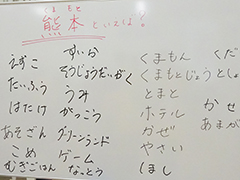 くま もと
熊本といえば？
えずこ
たいふう
はたけ
あそざん
こめ
むぎごはん
すいか
そうじょうだいがく
うみ
がっこう
グリーンランド
ゲーム
なっとう
くまもん
くまもとじょう
とまと
ホテル
かぜ
やさい
ほし